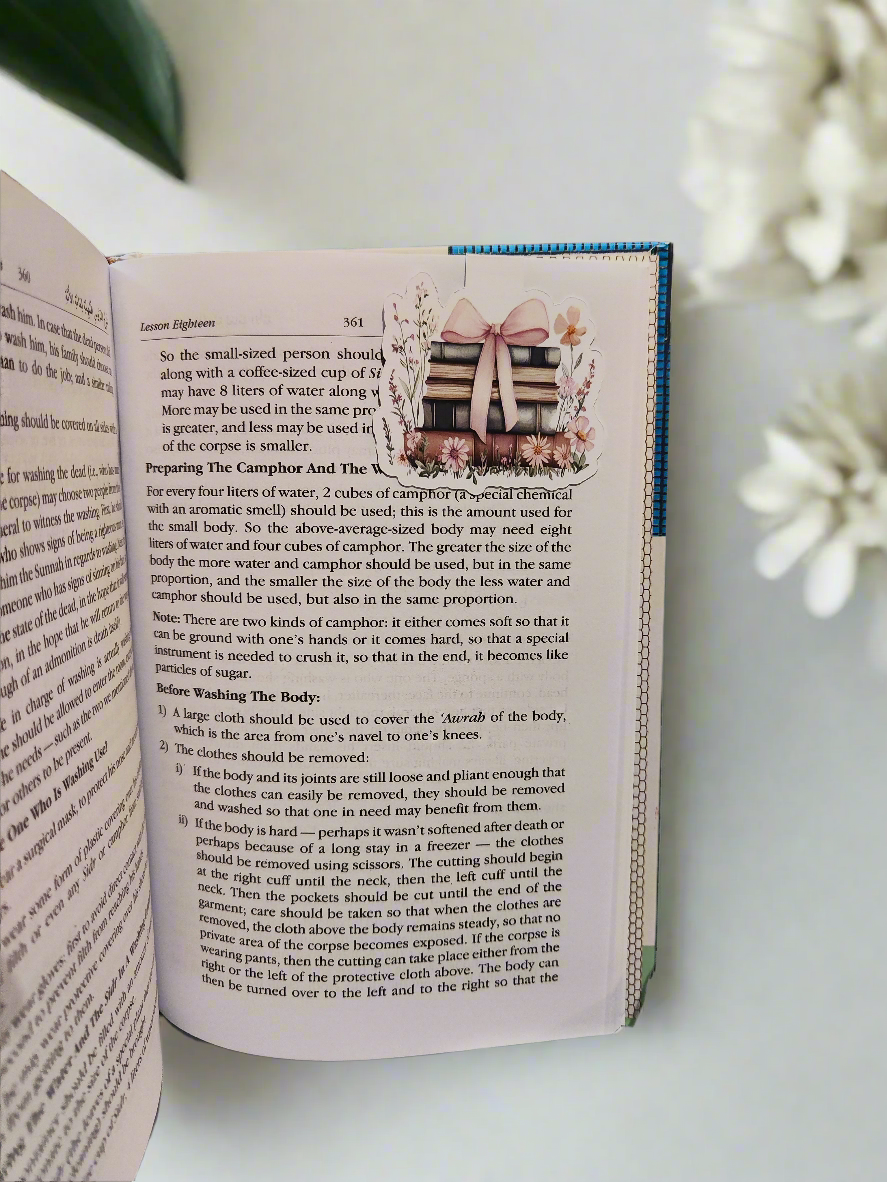 360
ash him. In case that the dead person did
wash him, his family should choose a
man to do the job, and a smaller
ning should be covered on all sides
e for washing the dead (i.e., who has
e corpse) may choose two people from the
eral to witness the washing. First, he should
who shows signs of being a righteous man
him the Sunnah in regards to washing, but
omeone who has signs of sinning on his
he state of the dead, in the hope that
on, in the hope that he will return to
ugh of an admonition is death itself
e in charge of washing is actually
e should be allowed to enter the room
he needs — such as the two we mentioned
or others to be present.
e One Who Is Washing Use?
ear a surgical mask, to protect his nose and
wear some form of plastic covering over his
Lesson Eighteen 361
So the small-sized person should
along with a coffee-sized cup of
may have 8 liters of water along
More may be used in the same
is greater, and less may be used
of the corpse is smaller.
Preparing The Camphor And The
For every four liters of water, 2 cubes of camphor (a special chemical
with an aromatic smell) should be used; this is the amount used for
the small body. So the above-average-sized body may need eight
liters of water and four cubes of camphor. The greater the size of the
body the more water and camphor should be used, but in the same
proportion, and the smaller the size of the body the less water and
camphor should be used, but also in the same proportion.
Note: There are two kinds of camphor: it either comes soft so that it
can be ground with one's hands or it comes hard, so that a special
instrument is needed to crush it, so that in the end, it becomes like
particles of sugar.
Before Washing The Body:
1) A large cloth should be used to cover the 'Awrah of the body,
which is the area from one's navel to one's knees.
2) The clothes should be removed:
i) If the body and its joints are still loose and pliant enough that
the clothes can easily be removed, they should be removed
and washed so that one in need may benefit from them.
ii) If the body is hard — perhaps it wasn't softened after death or
perhaps because of a long stay in a freezer — the clothes
should be removed using scissors. The cutting should begin
at the right cuff until the neck, then the left cuff until the
neck. Then the pockets should be cut until the end of the
garment; care should be taken so that when the clothes are
removed, the cloth above the body remains steady, so that no
private area of the corpse becomes exposed. If the corpse is
wearing pants, then the cutting can take place either from the
right or the left of the protective cloth above. The body can
then be turned over to the left and to the right so that the